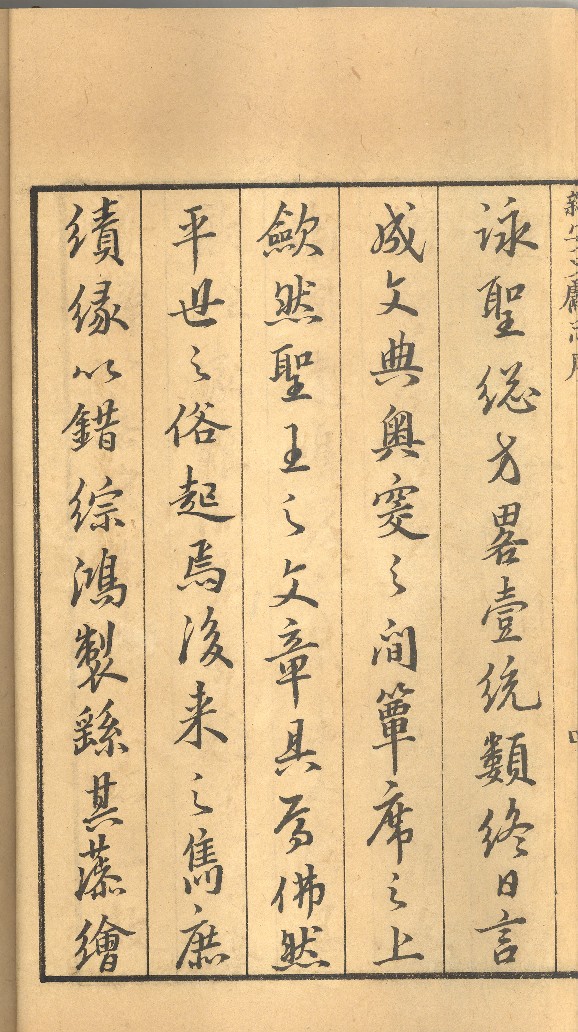 詠聖緫方畧壹統類終日言
成文典奥窔之間簟席之上
歛然聖王之文章具焉佛然
平世之俗起焉後来之雋庶
績緣以錯綜鴻製繇其藻繪